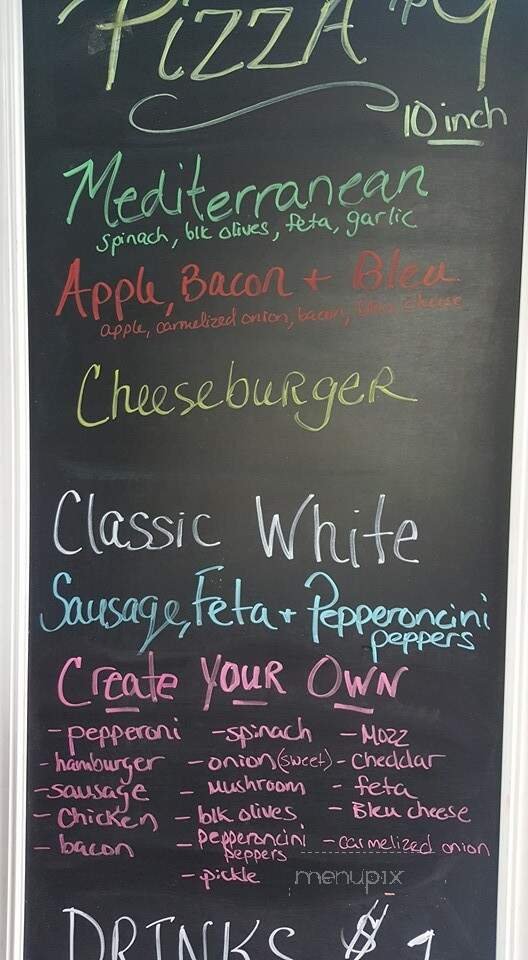 PIZZA $9
10 inch
Mediterranean
spinach, blk olives, feta, garlic
Apple, Bacon + Bleu
apple, carmelized onion, bacon, bleu cheese
Cheeseburger
Classic White
Sausage, Feta + Pepperoncini
peppers
Create Your Own
- pepperoni
- hamburger
- sausage
- Chicken
- bacon
- spinach
- onion (sweet)
- mushroom
- blk olives
- Pepperoncini
peppers
- pickle
- Mozz
- Cheddar
- feta
- Bleu cheese
- carmelized onion
menupix
DRINKS $1